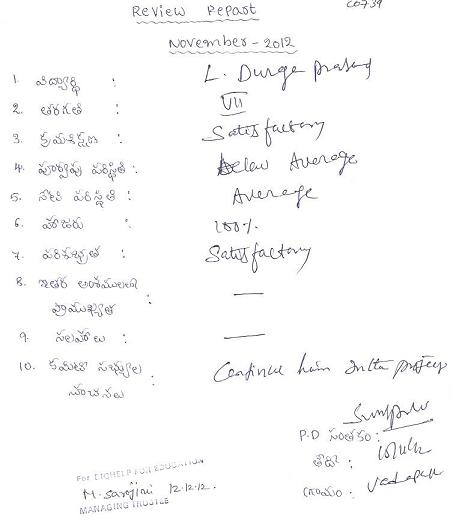 Review Report
C0739
November - 2012
1. విద్యార్థి : L. Durga prasad
2. తరగతి : VII
3. క్రమశిక్షణ : Satisfactory
4. పూర్వపు పరిస్థితి : Below Average
5. నేటి పరిస్థితి : Average
6. హాజరు : 100%
7. పరిశుభ్రత : Satisfactory
8. ఇతర అంశములలో : —
ప్రాముఖ్యత
9. సలహాలు : —
10. కమిటీ సభ్యుల : Continue him In the project
సూచనలు
P.D సంతకం :
తేది :
గ్రామం :
For EIGHELP FOR EDUCATION
M. Sarojini 12.12.12.
MANAGING TRUSTEE